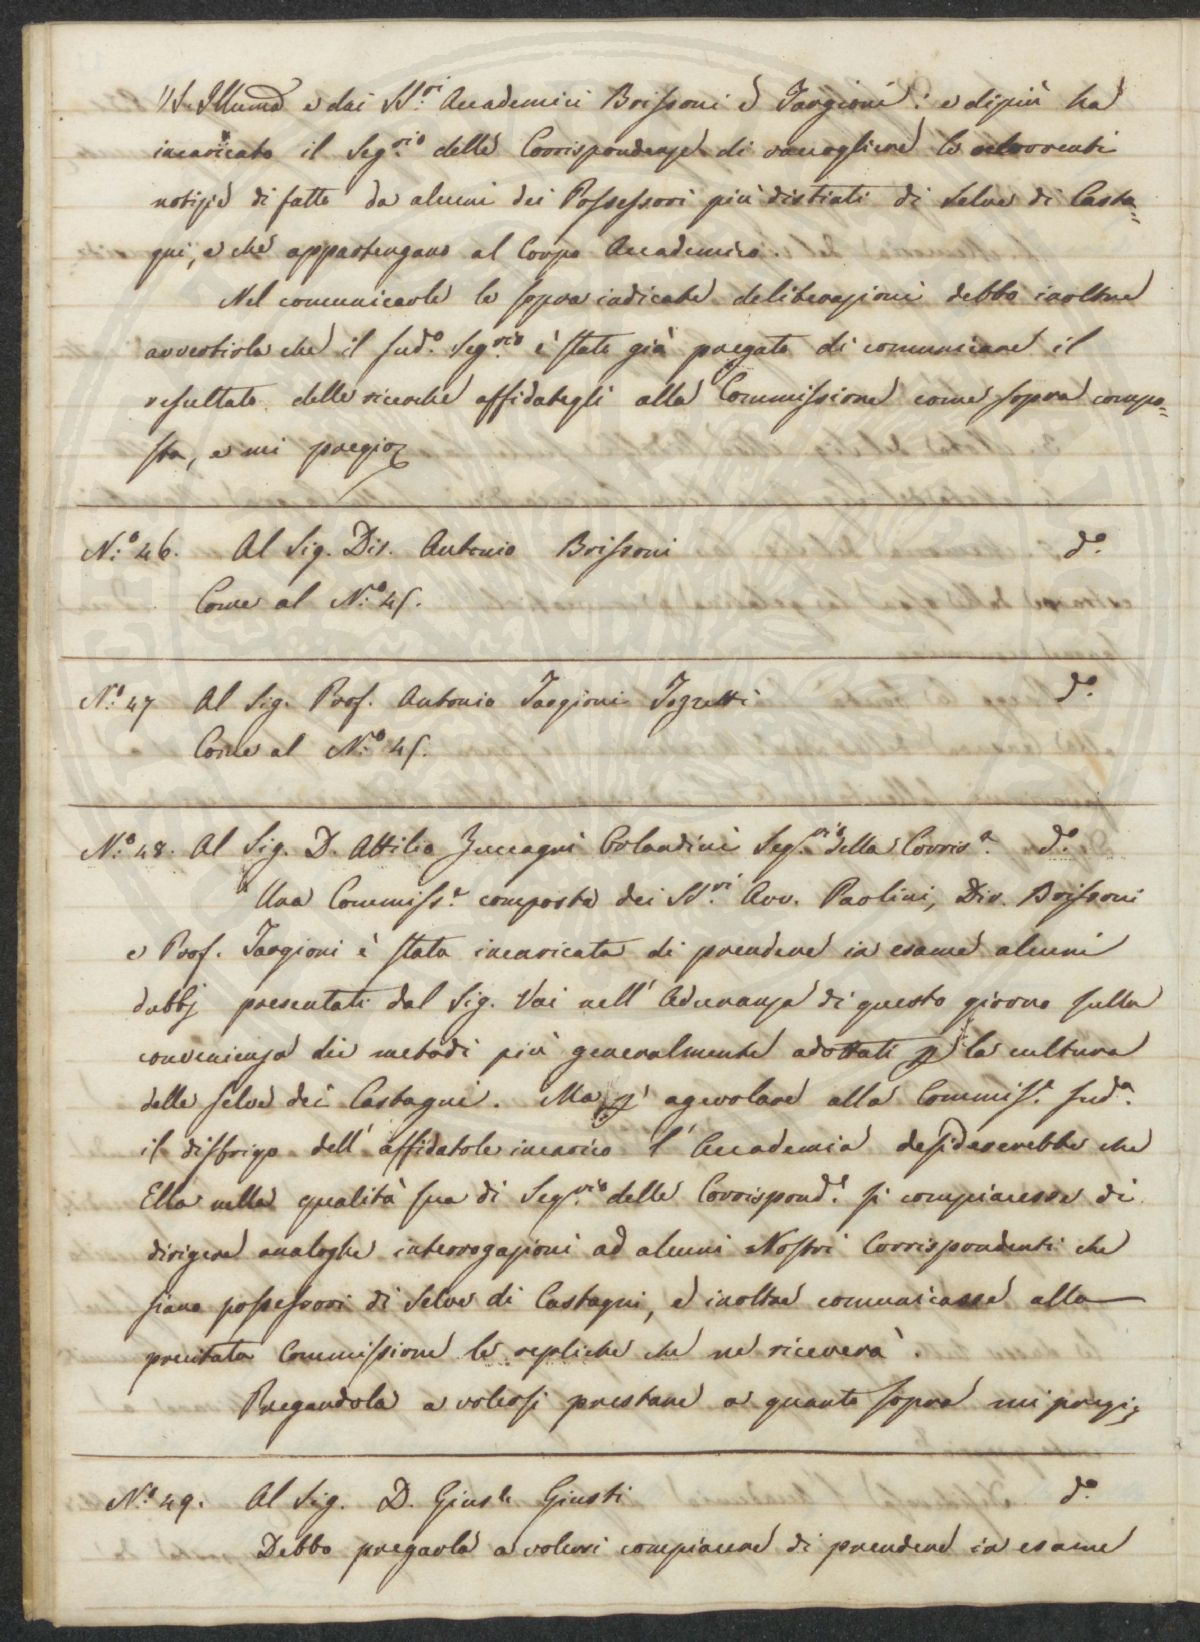 V.S. Illumã e dai SS.ri Accademici Brissoni e Targioni: e dipiù ha
incaricato il Seg.rio delle Corrispondenze di raccogliere le occorrenti
notizie di fatto da alcuni dei Possessori più distinti di Selve di Casta=
gni, e che appartengano al Corpo Accademico.
Nel comunicarle le sopra indicate deliberazioni debbo inoltre
avvertirla che il sud.o Seg.rio è stato già pregato di comunicare il
resultato delle ricerche affidategli alla Commissione come sopra compo=
sta, e mi pregio
N.o 46. Al Sig. Dir. Antonio Brissoni d.o
Come al N.o 45.
N.o 47 Al Sig. Prof. Antonio Targioni Tozzetti d.o
Come al N.o 45.
N.o 48. Al Sig. D. Attilio Zuccagni Orlandini Seg.rio della Corris.a d.o
Una Commiss.e composta dei SS.ri Avv. Paolini, Dir. Brissoni
e Prof. Targioni è stata incaricata di prendere in esame alcuni
dubbj presentati dal Sig. Vai nell' Adunanza di questo giorno sulla
convenienza dei metodi più generalmente adottati p la cultura
delle selve dei Castagni. Ma p agevolare alla Commis.e sud.a
il disbrigo dell' affidatole incarico l' Accademia desidererebbe che
Ella nella qualità sua di Seg.rio delle Corrispond.e si compiacesse di
dirigere analoghe interrogazioni ad alcuni Nostri Corrispondenti che
siano possessori di Selve di Castagni, e inoltre comunicasse alla
precitata Commissione le repliche che ne riceverà.
Pregandola a volersi prestare a quanto sopra mi pregi
N.o 49. Al Sig. D. Gius.e Giusti d.o
Debbo pregarla a volersi compiacere di prendere in esame